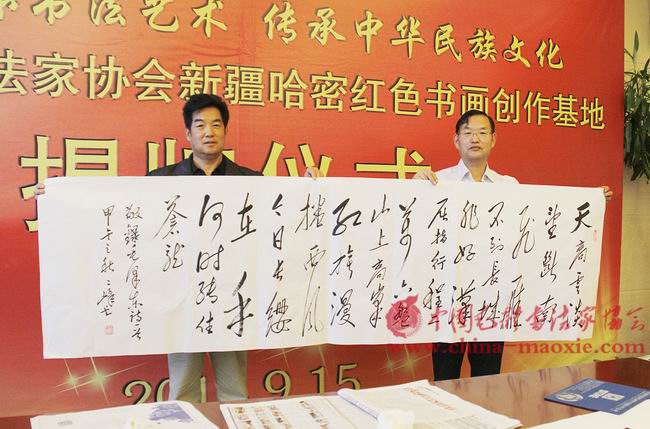 书法艺术 传承中华民族文化
法家协会新疆哈密红色书画创作基地
揭牌仪式
天高云淡
望断南
飞雁
不到长城
非好汉
屈指行程二
万六盘
山上高峰
红旗漫
捲西风
今日长缨
在手
何时缚住
苍龙
敬录毛泽东诗一首
甲午之秋
中国毛体书法家协会
www.china-maoxie.com
201
9.15